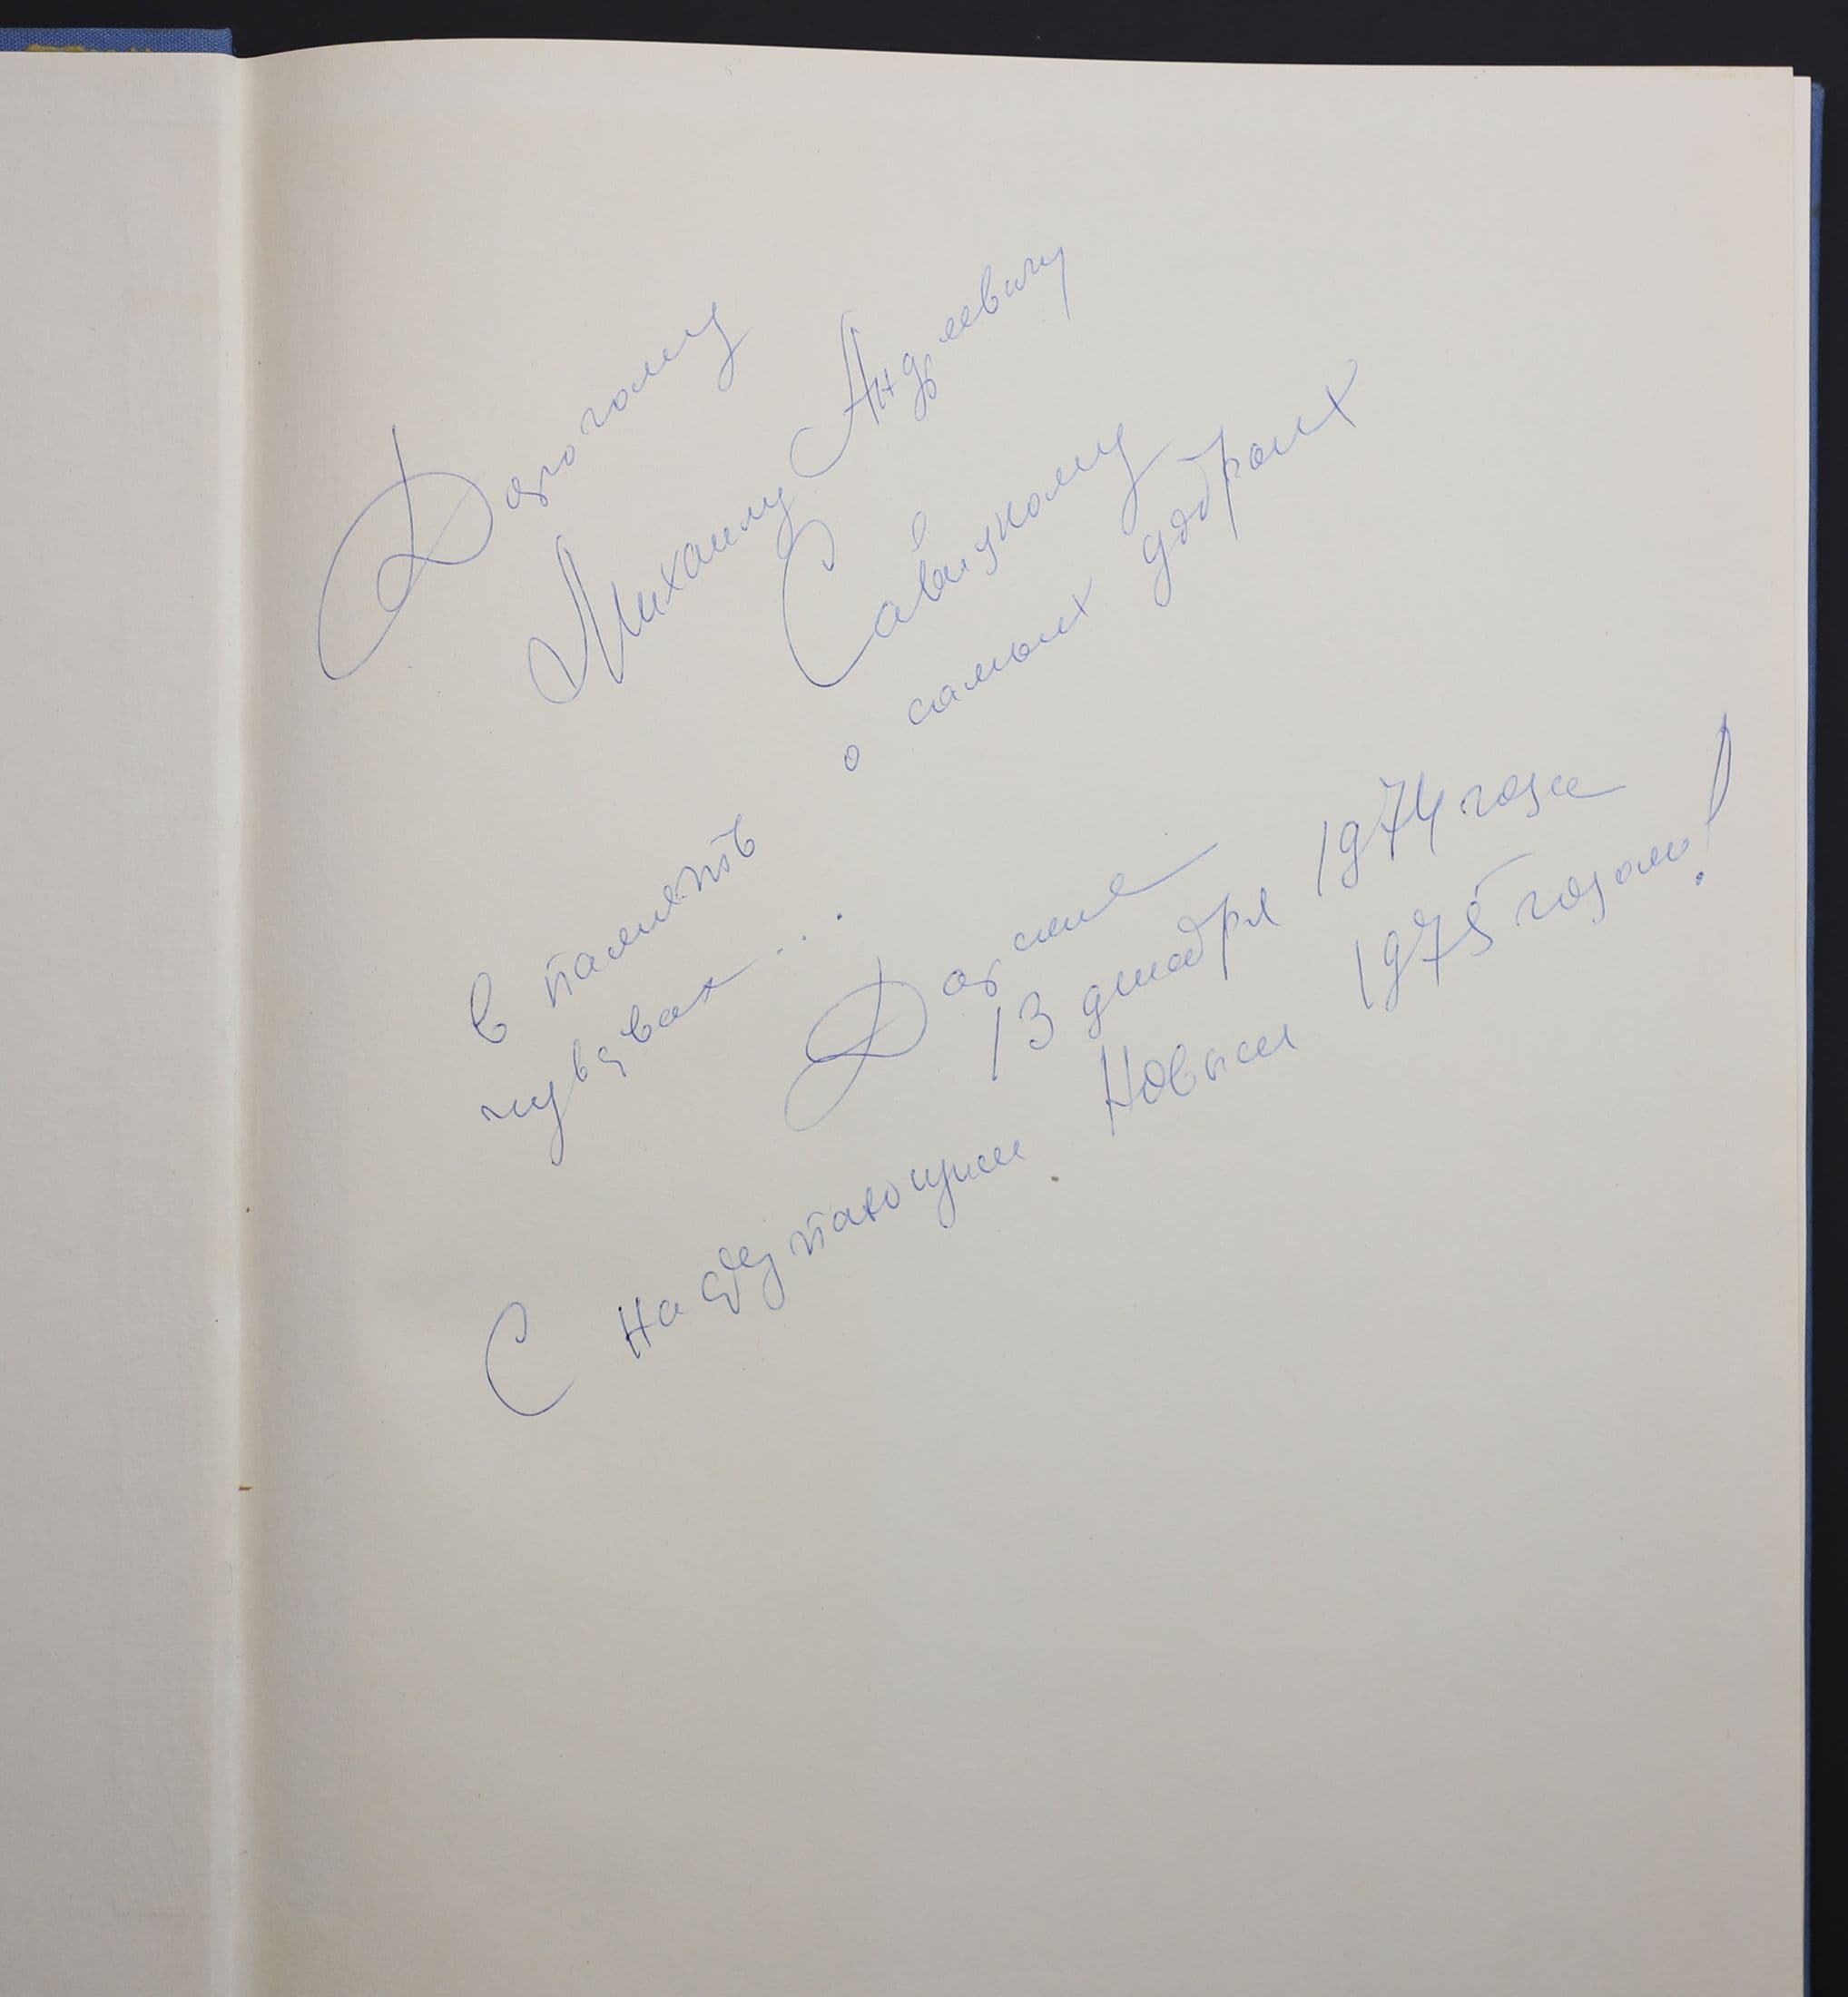 Дорогому
Михаилу Андреевичу
Савицкому
в память о самых добрых
чувствах...
13 декабря 1974 года
С наступающим Новым 1975 годом!